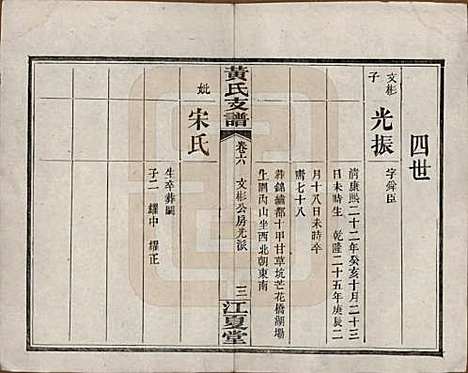 四世
文彬
子
光振
字舜臣
清康熙二十二年癸亥十月二十三
日未時生 乾隆二十五年庚辰二
月十八日未時卒
壽七十八
葬錦繡都十甲甘草坑芒花橋湖塲
生圓丙山坐西北朝東南
黃氏支譜
卷六
文彬公房光派
三
江夏堂
妣
宋氏
生卒葬闕
子二 繼中 繼正